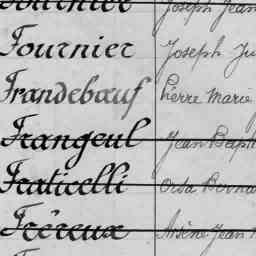 Fournier Joseph Jean
Fournier Joseph Ju
Frandebœuf Pierre Marie
Frangeul Jean Bapt
Fraticelli Orsa Berna
Fréreux Arsène Jean